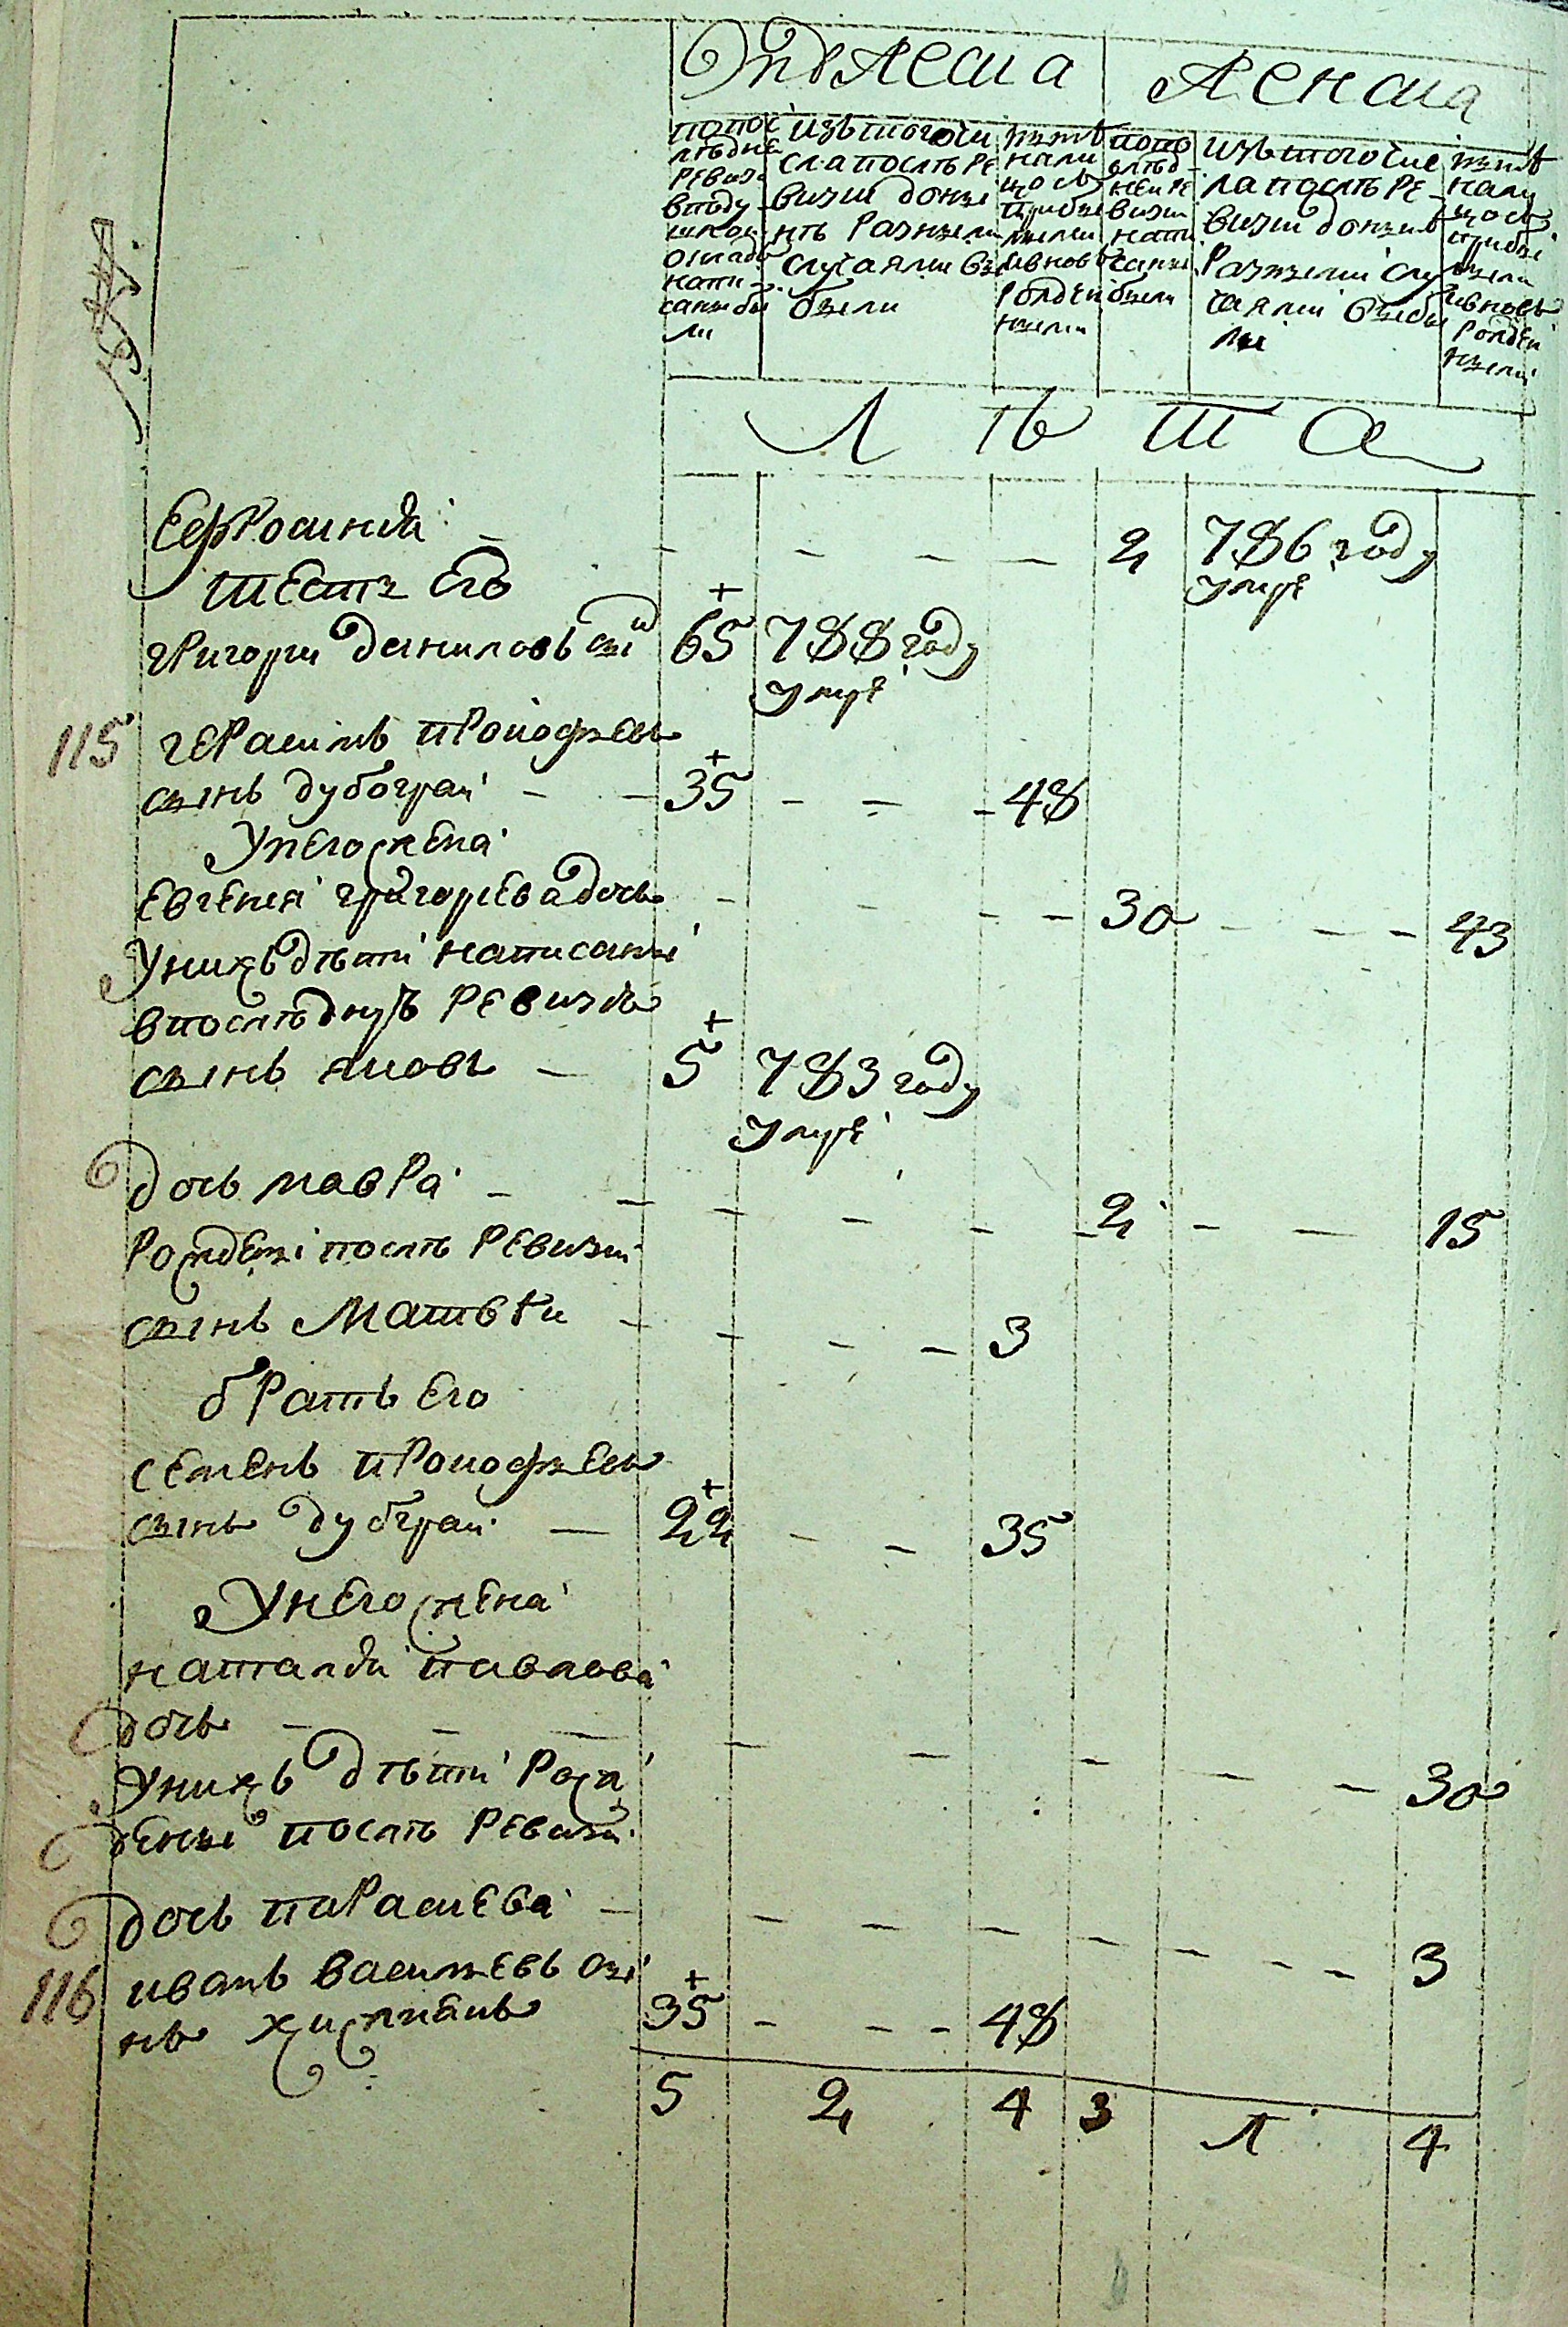 Женска
по пос
лѣдне
ревиз
в поду
шном
окладѣ
напи
саны бы
ли
изъ того чи
сла послѣ ре
визи донн
нѣ разными
случаями вы
были
нынѣ
нали
цо съ
прибы
лыми
и вновь
рожден
ными
по по
слѣд
неи ре
визи
напи
саны
были
изъ того чис
ла послѣ ре
визи донынѣ
разными слу
чаями выбы
ли
нынѣ
нали
цо съ
прибы
лыми
и вновь
рожден
ными
Л ѣ т а
Ефросиниа - - - - - 2 786 году
умре
тесть его
григори даниловъ сы 65 788 году
умре
115 герасимъ прокофьевъ
сынъ дубограи - - 35 - - - 48
У него жена
евгения григорьева дочь - - - - 30 - - - 43
У нихъ дѣти написаны
в последнуѣ ревизиѣ
сынъ яковъ - 5 783 году
умре
дочь мавра - - - - - - 2 - - 15
рождены послѣ ревизи
сынъ Матвѣи - - - - 3
братъ его
семенъ прокофьевъ
сынъ дубграи - 22 - - 35
У него жена
наталия павлова
дочь - - - - - - - - 30
У нихъ дѣти рож
дены послѣ ревизи
дочь параскева - - - - - - - - 3
116 иванъ васильевъ сы
нъ 35 - - - 48
5 2 4 3 1 4